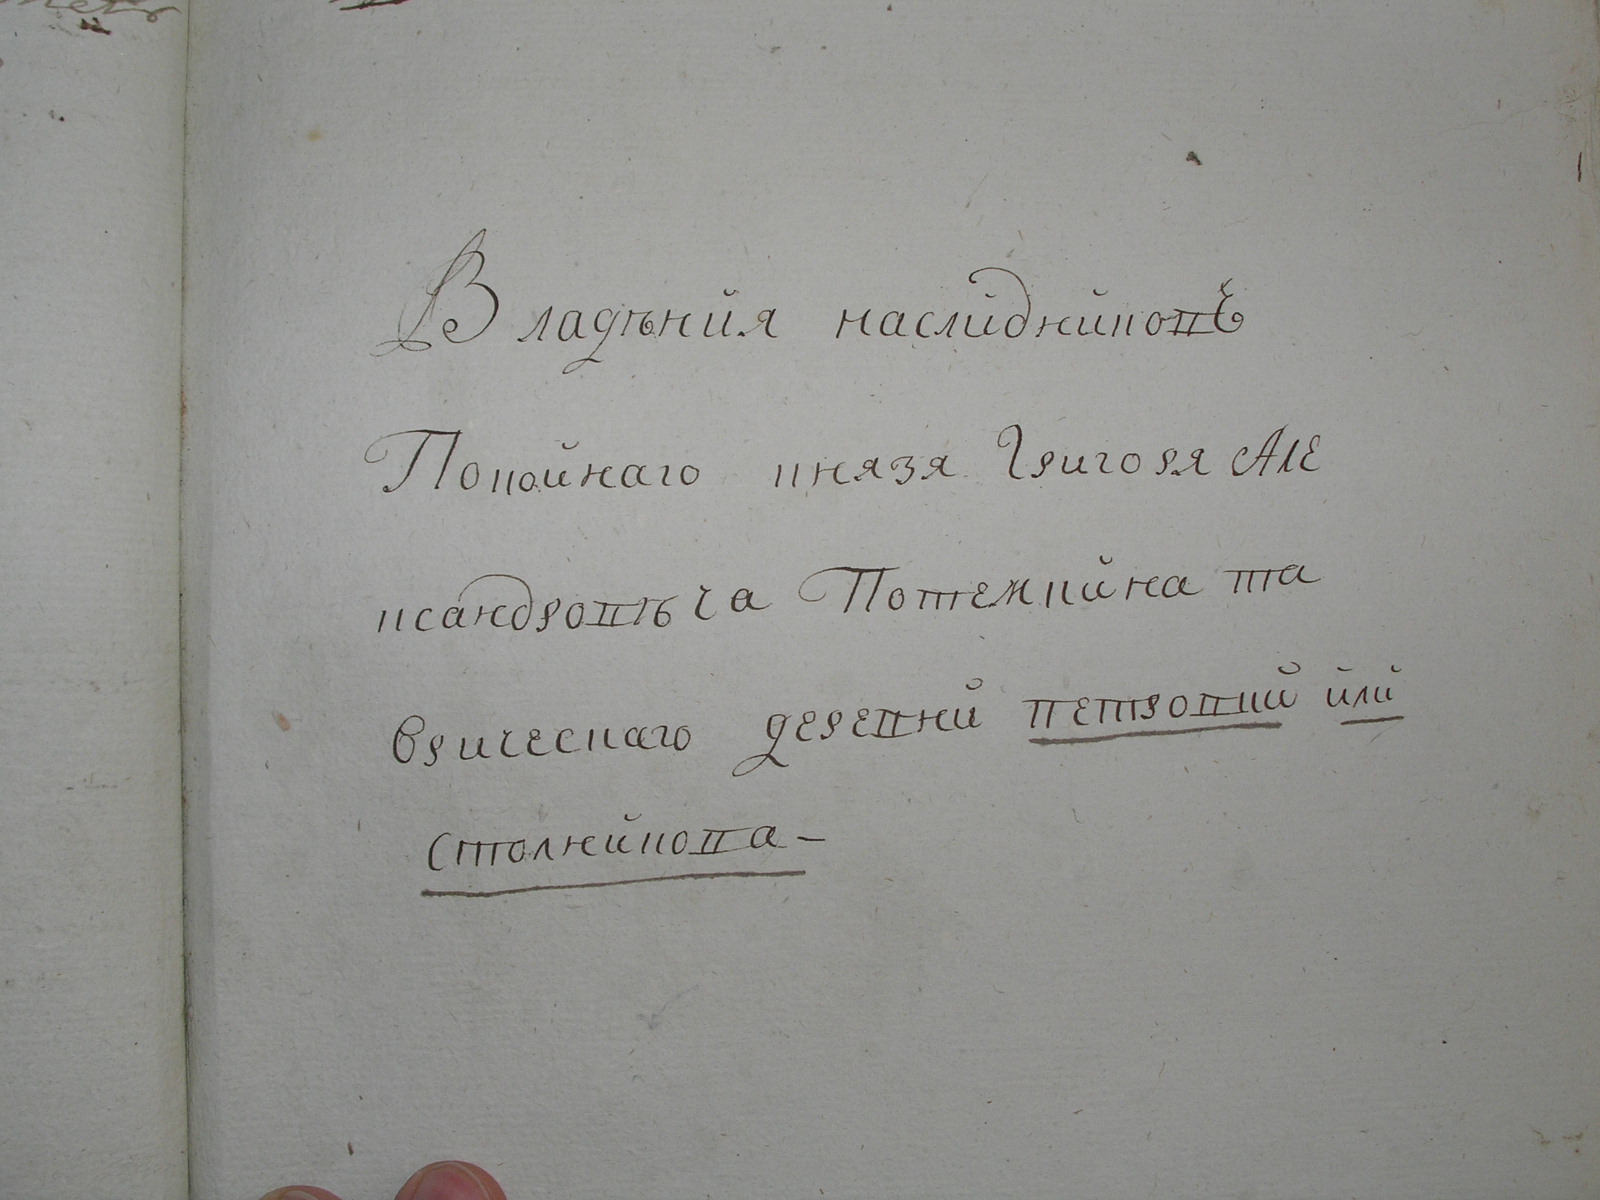 Владѣнiя наслiдникопъ
Покойнаго князя Григоря Але
ксандровѣча Потемкина та
врическаго деревни петровки или
столникова –